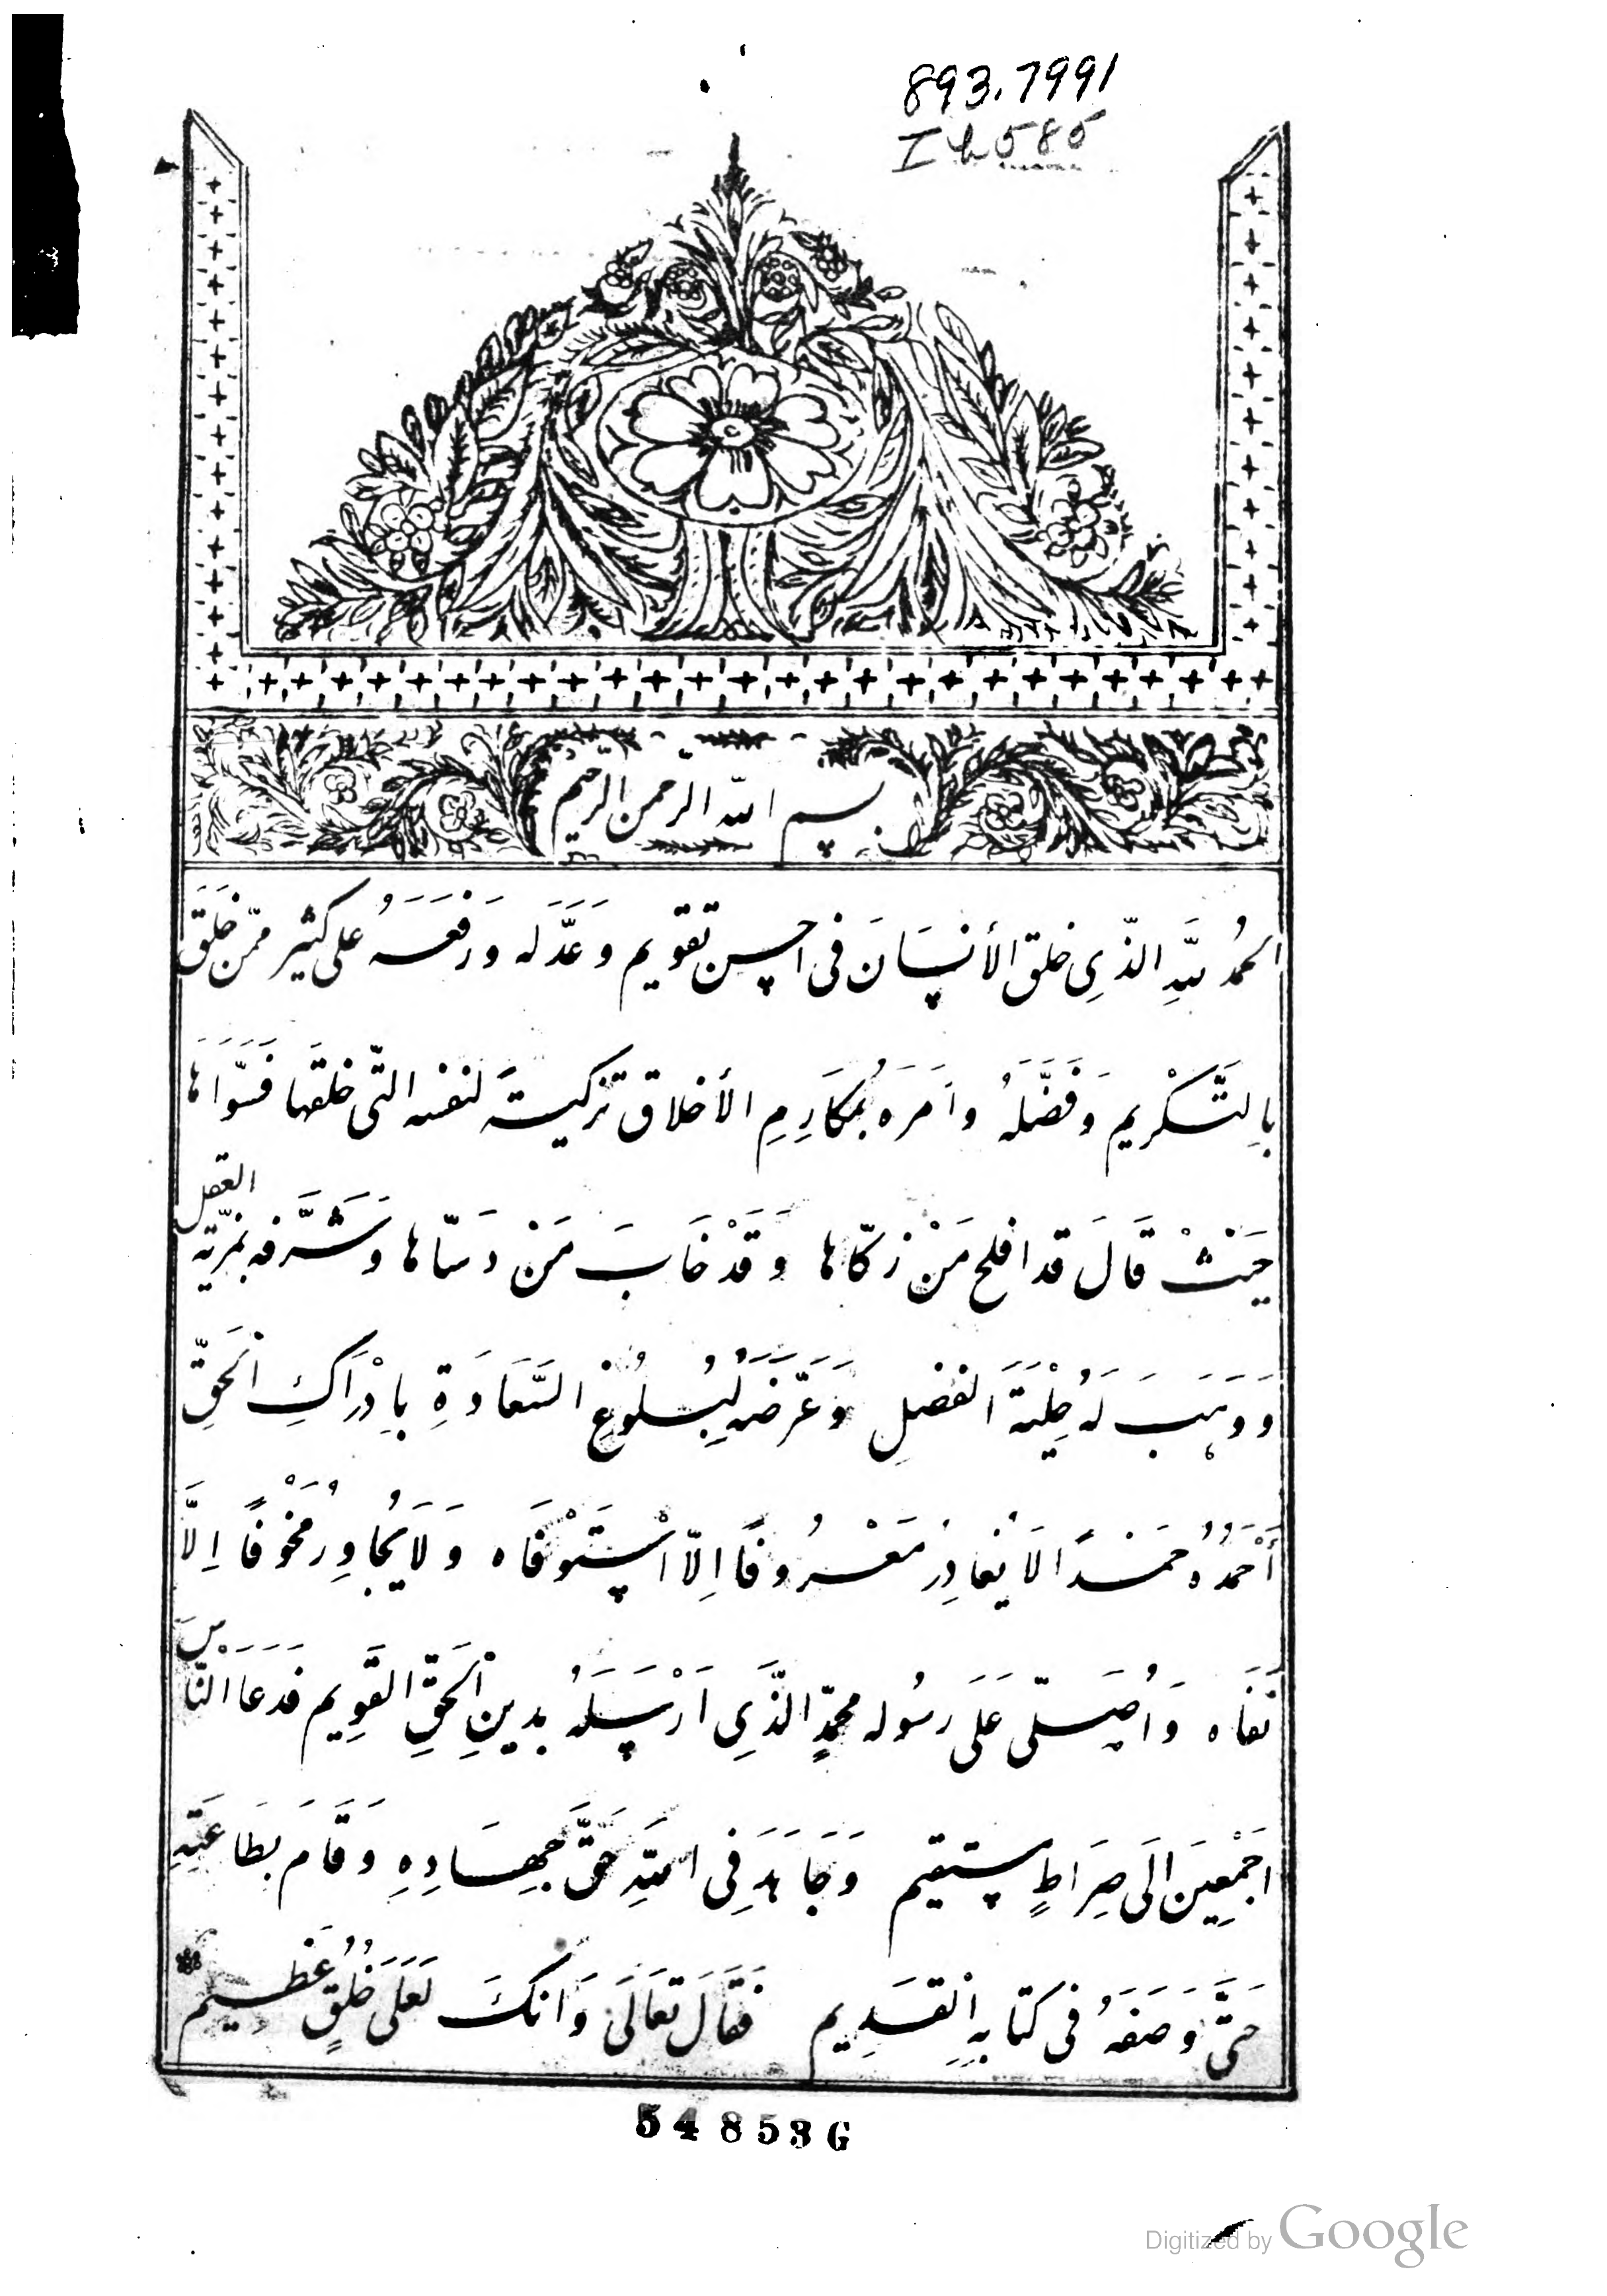 893.7991
Ib585
بسم الله الرحمن الرحيم
الحمدُ للَّهِ الذّي خلق الأنسَانَ فى احسن تقويم وَعَدَّلَه وَرَفَعَهُ على كثيرٍ ممّن خَلَقَ
بالتَّكْريم وَفَضَّلَهُ وأَمَرَه بمُكَارِمِ الأخلاق تزكيةً لنفسه التّى خلقَها فَسَوّاهَا
حَيْثُ قَالَ قد افلح مَنْ زكّاها وَقَدْ خَابَ مَنْ دَسّاها وَشَرَّفه بمَزيّة العقل
وَوَهَبَ لَهُ حِلْيَةَ الفضلِ وَعَرَّضَه لِبُلُوغِ السَّعَادَةِ بِاِدْرَاكِ الْحَقِّ
أَحْمَدُهُ حَمْداً لَا يُغادِرُ مَعْرُوفاً اِلاّ اسْتَوْفَاه وَلَا يُجاوِرُ مَخْوفاً اِلَّا
نَفَاه وَاُصَلّى عَلَى رسُوله محمّدٍ الذَّي اَرْسَلَهُ بدينِ الْحَقِّ القَوِيم فَدَعَا النّاسَ
اجْمَعِينَ الَى صِرَاطٍ مستقيم وَجَاهَدَ فِى اللَّهِ حَقَّ جِهَادِهِ وَقَامَ بطَاعَتِهِ
حَتَّى وَصَفَهُ فى كتابِهِ الْقَدِيم فَقَالَ تعَالَى وَانكَ لَعَلَى خُلُقٍ عَظيم
54853G
Digitized by Google